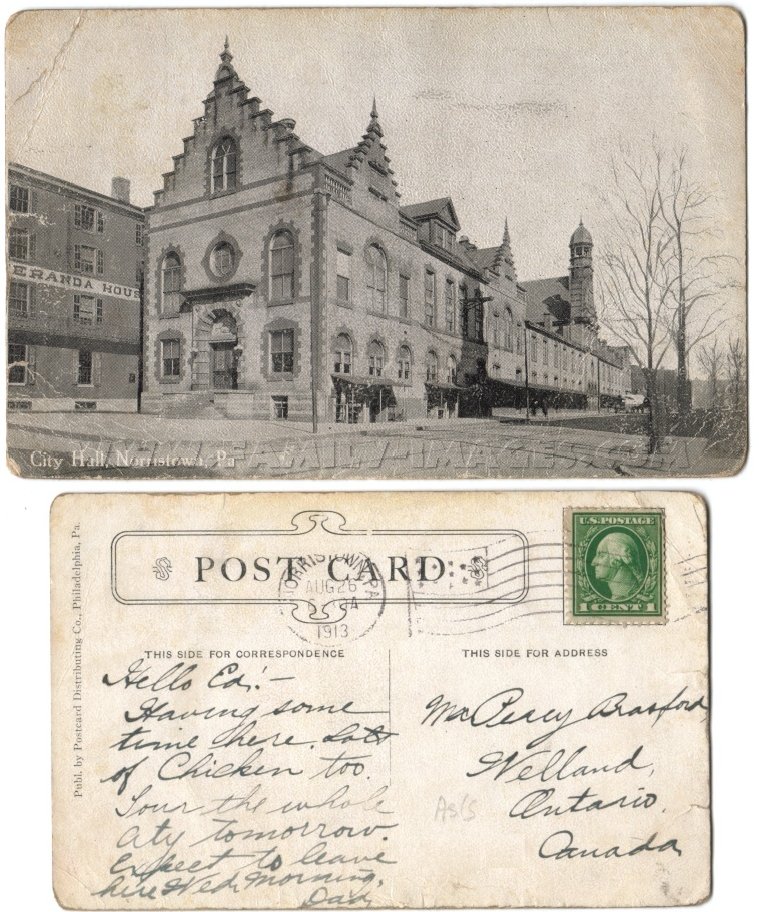 ERANDA HOUS
City Hall, Norristown, Pa
WWW.FAMILY-IMAGES.COM
U.S. POSTAGE
1 CENT 1
POST CARD
NORRISTOWN, PA
AUG 26
A
1913
Publ. by Postcard Distributing Co., Philadelphia, Pa.
THIS SIDE FOR CORRESPONDENCE
Hello Ed:-
Having some
time here. Lots
of Chicken too.
Tour the whole
City tomorrow.
Expect to leave
here Wed. Morning.
Dad
THIS SIDE FOR ADDRESS
Mr Percy Brasford
Welland,
Ontario.
Canada